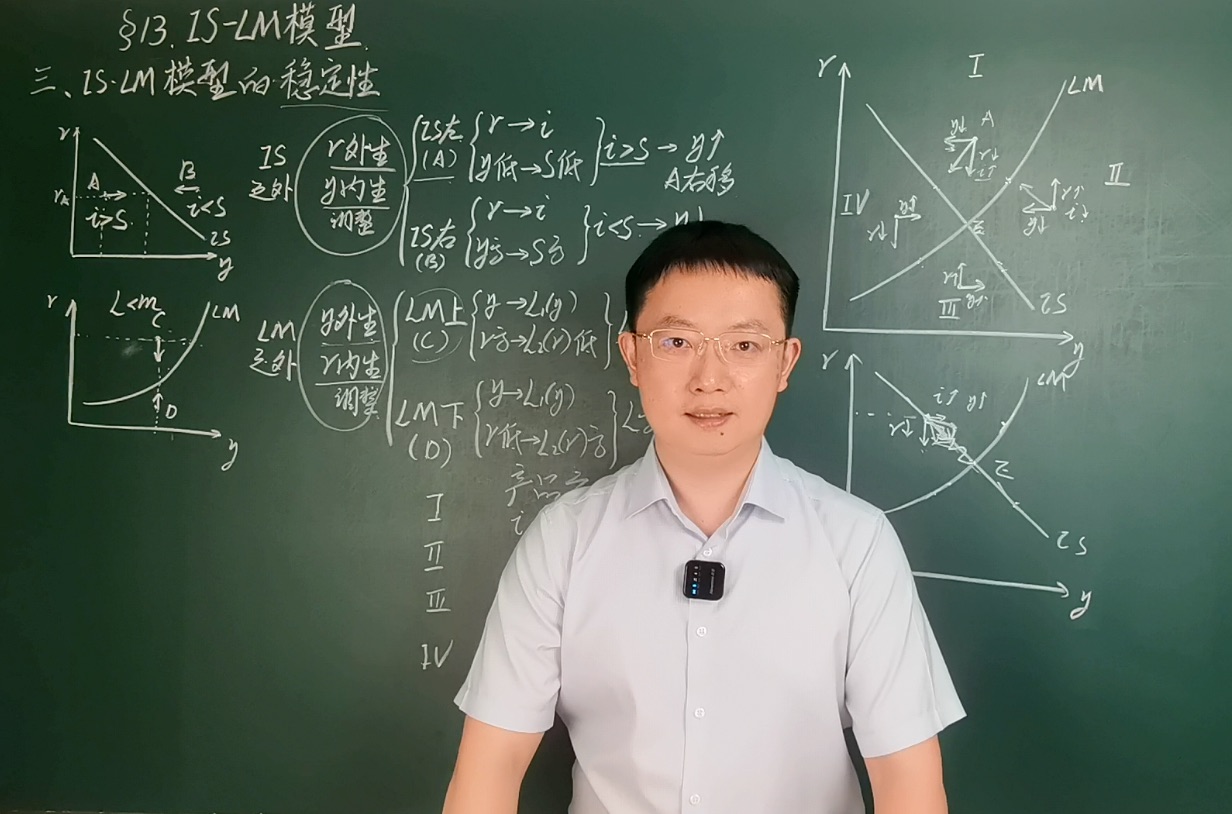 §13. IS-LM模型
三、IS-LM模型的稳定性
r
A
B
r_A
i>S
i<S
IS
y
IS之外
r外生
y内生
调整
IS左
(A)
r→i
y低→S低
i>S→y↑
A右移
IS右
(B)
r→i
y高→S高
i<S→y↓
r
L<m
C
LM
D
y
LM之外
y外生
r内生
调整
LM上
(C)
y→L₁(y)
r高→L₂(r)低
LM下
(D)
y→L₁(y)
r低→L₂(r)高
产品
i
I
II
III
IV
r
I
LM
y↓
A
r↓
i↑
II
r↑
i↓
y↓
IV
y↑
r↓
E
r↑
y↑
III
IS
y
r
LM
i↑ y↑
r↓
E
IS
y